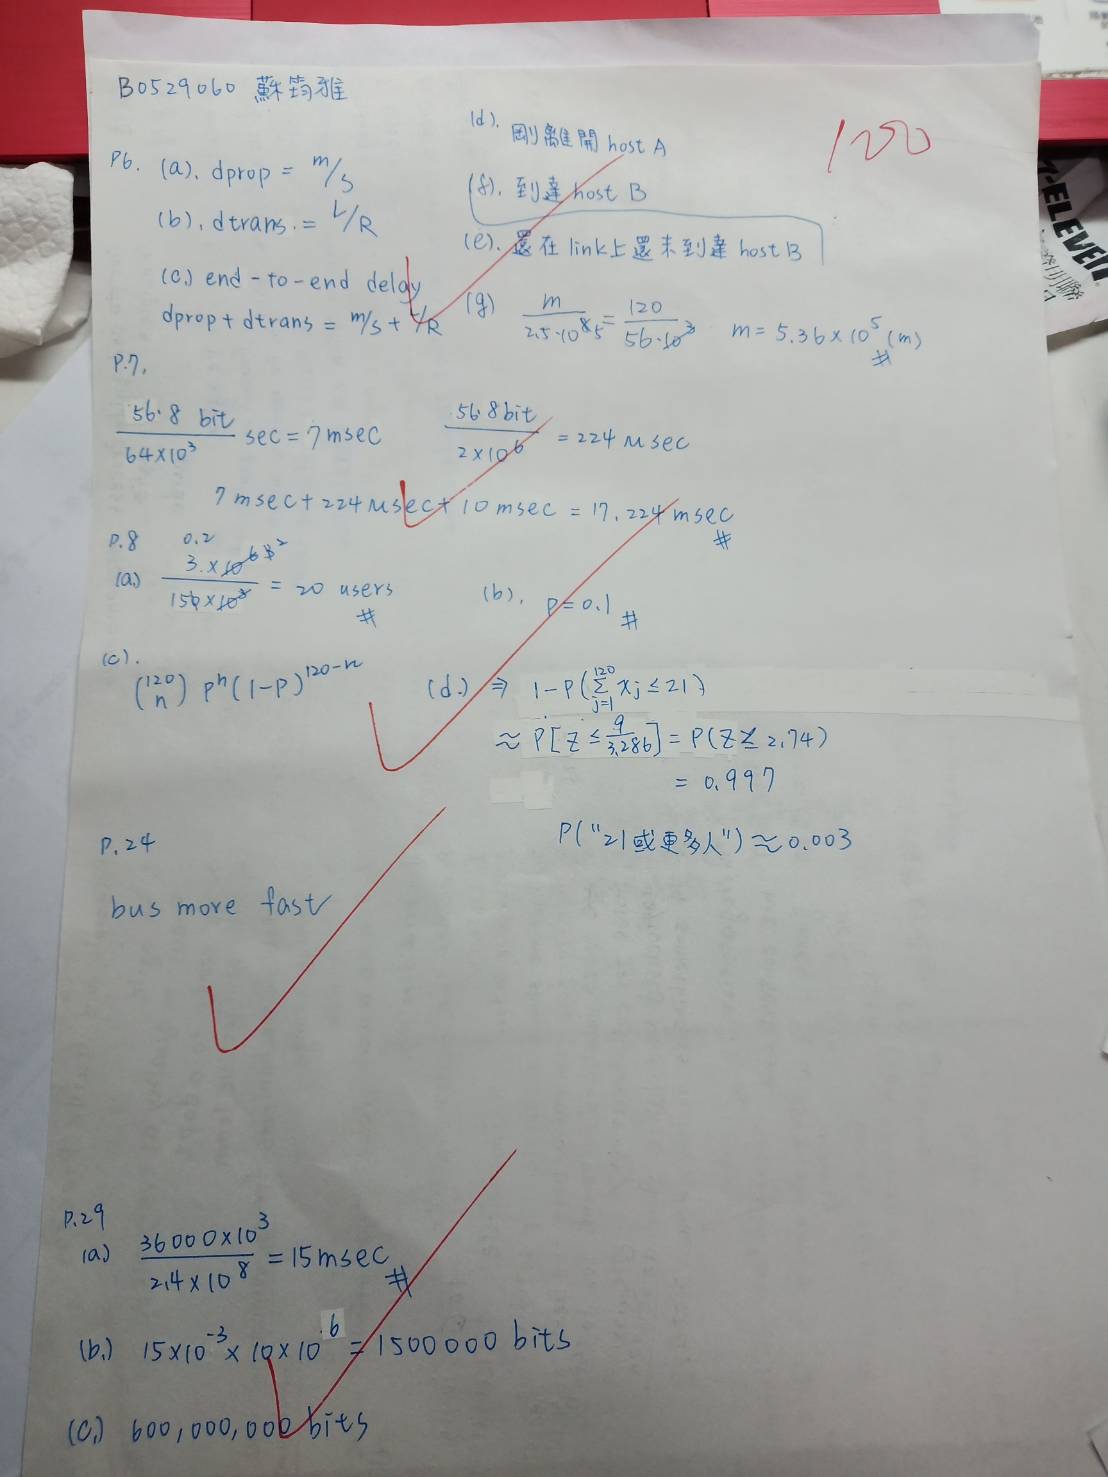 B0529060 蘇筠雅
100
P6. (a). dprop = m/s
(b). dtrans. = L/R
(c.) end-to-end delay
dprop + dtrans = m/s + L/R
(d). 剛離開 host A
(f). 到達 host B
(e). 還在 link上還未到達 host B
(g) m/2.5·10^8 s = 120/56·10^3 m = 5.36×10^5 (m) #
P.7.
56·8 bit/64×10^3 sec = 7 msec 56·8bit/2×10^6 = 224 μsec
7 msec + 224 μsec + 10 msec = 17.224 msec #
P.8
(a.) 3.×10^6/150×10^3 = 20 users #
(b). p = 0.1 #
(c).
(120 n) p^n (1-p)^120-n
(d.) ⇒ 1-P(120Σj=1 xj ≤ 21)
≈ P[Z ≤ 9/3.286] = P(Z ≤ 2.74)
= 0.997
P("21或更多人") ≈ 0.003
P.24
bus more fast
P.29
(a) 36000×10^3/2.4×10^8 = 15 msec #
(b.) 15×10^-3 × 10×10^6 = 1500000 bits
(c.) 600,000,000 bits
7-ELEVEN